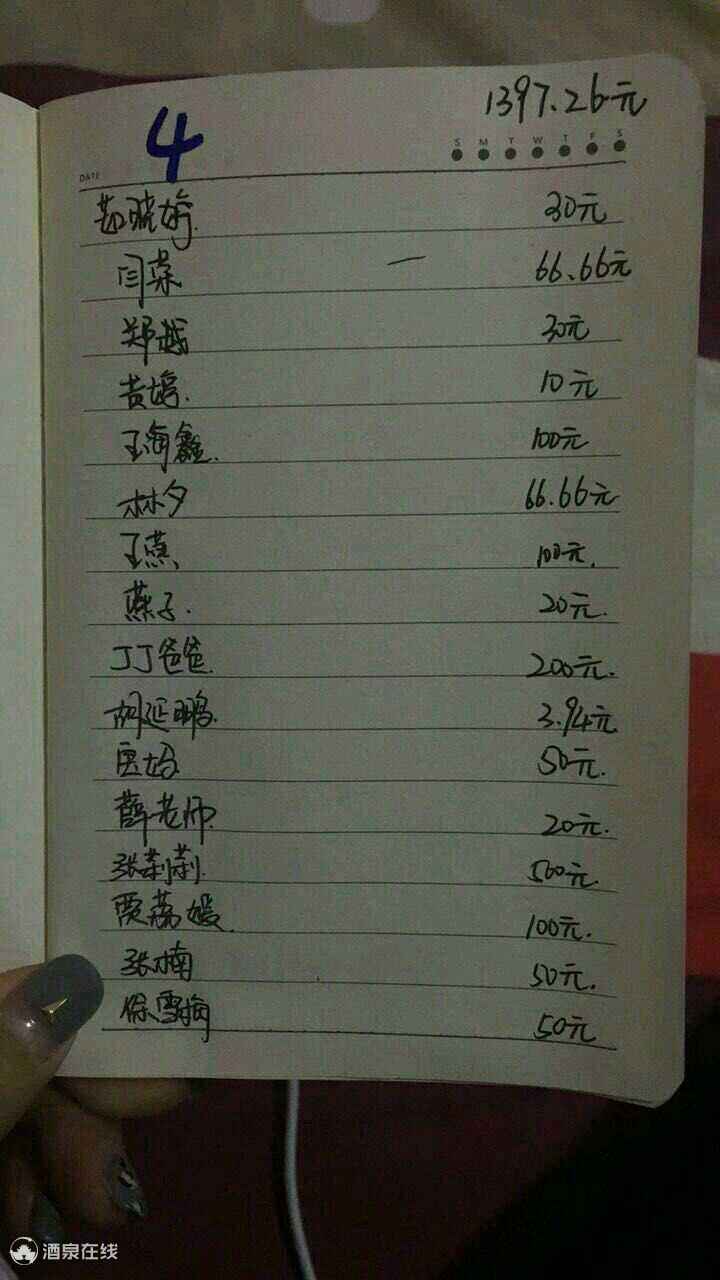 1397.26元
4
DATE
S M T W T F S
晓婷. 30元
闫荣 — 66.66元
郑越 30元
10元
王海鑫. 100元
林夕 66.66元
王燕 100元.
燕子. 20元.
丁丁爸爸. 200元.
胡延鹏. 3.94元
50元.
薛老师. 20元.
张莉莉. 500元.
贾荔媛. 100元.
张楠 50元.
徐雪梅 50元
酒泉在线